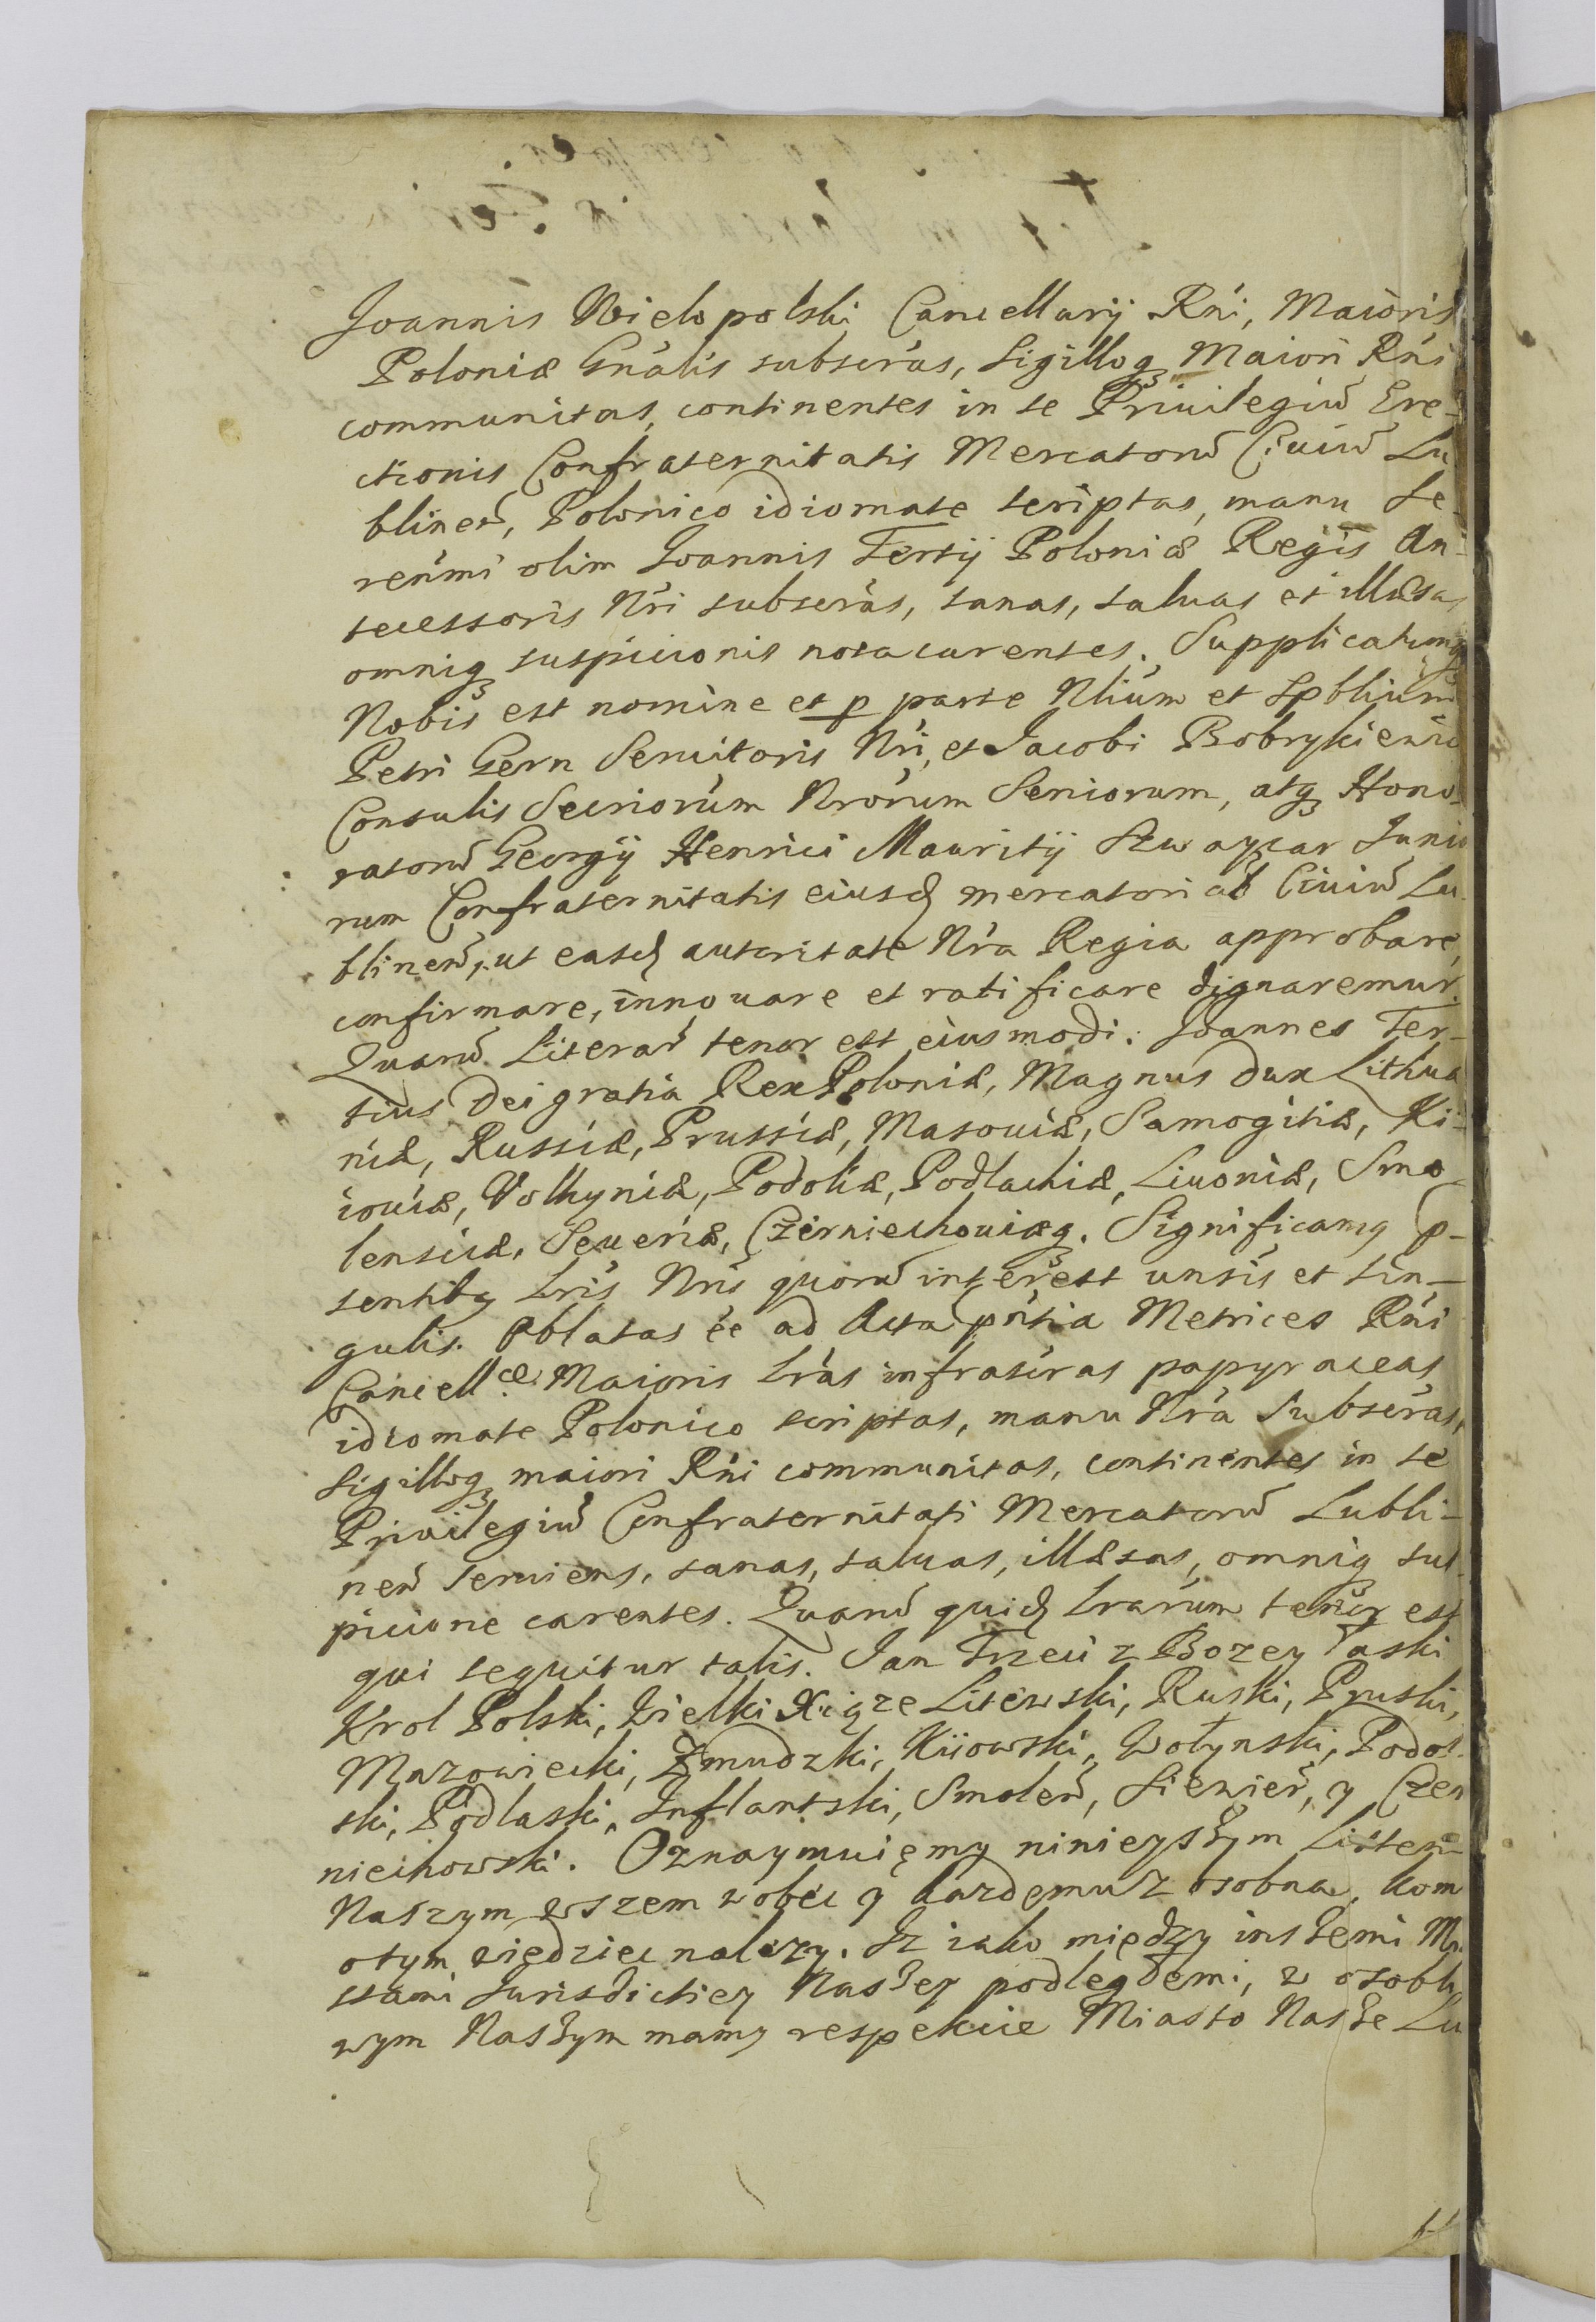 Joannis Wielopolski Cancellarij Rńi, Maioris
Poloniæ Gńalis subscrás, Sigilloq Maiori Rńi
communitas, continentes in se Priuilegiu Ere-
ctionis Confraternitatis Mercatoru Ciuiu Lu
blinen, Polonico idiomate scriptas, manu Se-
renimi olim Joannis Tertij Poloniæ Regis An-
tecessoris Nri subscrás, sanas, saluas et illæsas
omniq suspicionis nota carentes. Supplicatumq
Nobis est nomine et p parte Nlium et Spblium
Petri Gern Seruitoris Nri, et Jacobi Bobrykiewic
Consulis Secriorum Nrorum Seniorum, atq Hono
ratoru Georgij Henrici Mauritij Szwaycar Junio
rum Confraternitatis eiusd mercatoriæ Ciuiu Lu
blinen, ut easd autoritate Nra Regia approbare,
confirmare, innouare et ratificare dignaremur.
Quaru Literar tenor est eiusmodi: Joannes Ter-
tius Dei gratia Rex Poloniæ, Magnus Dux Lithua
niæ, Russiæ, Prussiæ, Masouiæ, Samogitiæ, Ki-
iouiæ, Volhyniæ, Podoliæ, Podlachiæ, Liuoniæ, Smo
lensciæ, Seueriæ, Czerniechouiæq. Significamq p-
sentibq Lris Nris quoru interest unsis et sin-
gulis. Oblatas ée ad Acta pńtia Metrices Rńi
Cancellæ Maioris Lrás infrascras papyraceas
idiomate Polonico scriptas, manu Nra Subscrás,
Sigilloq maiori Rńi communitas, continentes in se
Priuilegiu Confraternitati Mercatoru Lubli-
nen seruiens, sanas, saluas, illæsas, omniq sus
picione carentes. Quaru quid Lrarum tenor est
qui sequitur talis. Jan Trzeci z Bozey Łaski
Krol Polski, Wielki Xiąze Litewski, Ruski, Pruski,
Mazowiecki, Zmudzki, Kiiowski, Wołynski, Podol-
ski, Podlaski, Inflantski, Smolen, Siewier, y Czer
niechowski. Oznaymuięmy ninieyszym Listem
Naszym wszem wobec y kazdemu z osobna, kom
otym wiedziec nalezy. Iz iako między inszemi Mia
stami Jurisdictiey Naszey podległemi, w osobli
wym Naszym mamy respekcie Miasto Nasze Lu